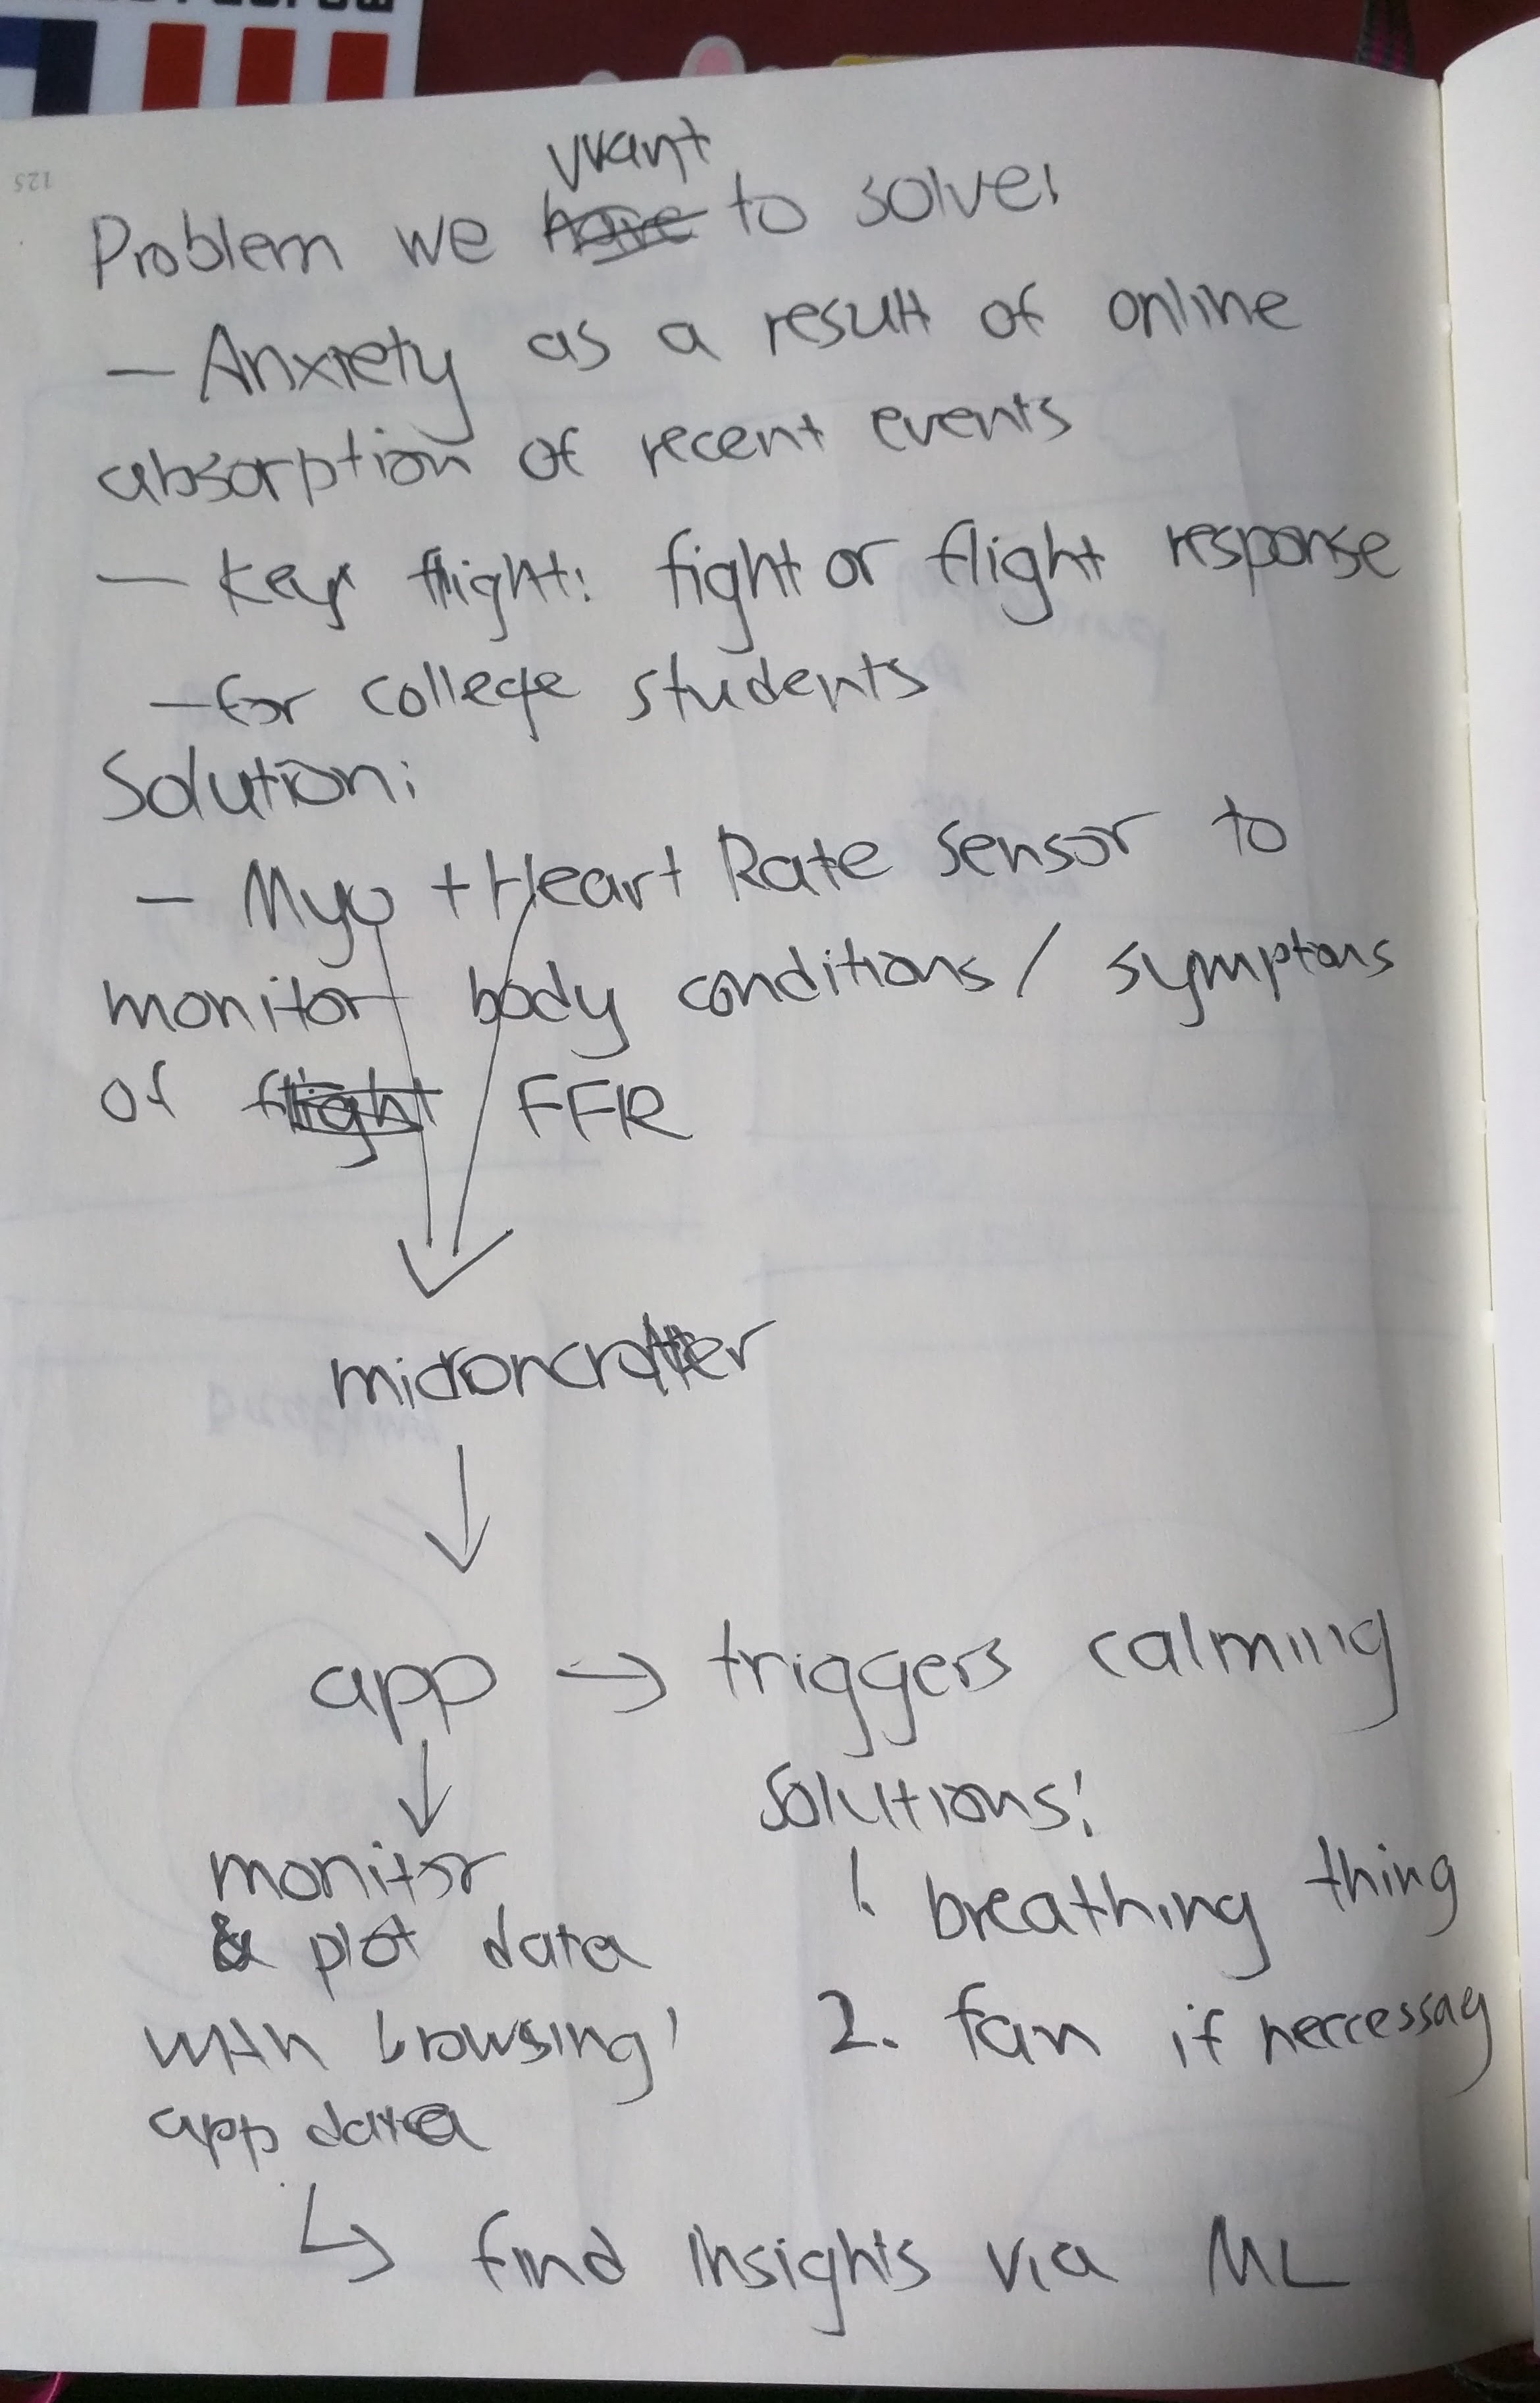 125
want
Problem we have to solve:
- Anxiety as a result of online
absorption of recent events
- Key flight: fight or flight response
- for college students
Solution:
- Myo + Heart Rate Sensor to
monitor body conditions / symptoms
of flight FFR
app → triggers calming
solutions:
1. breathing thing
2. fan if neccessay
monitor
& plot data
with browsing/
app data
↳ find insights via ML